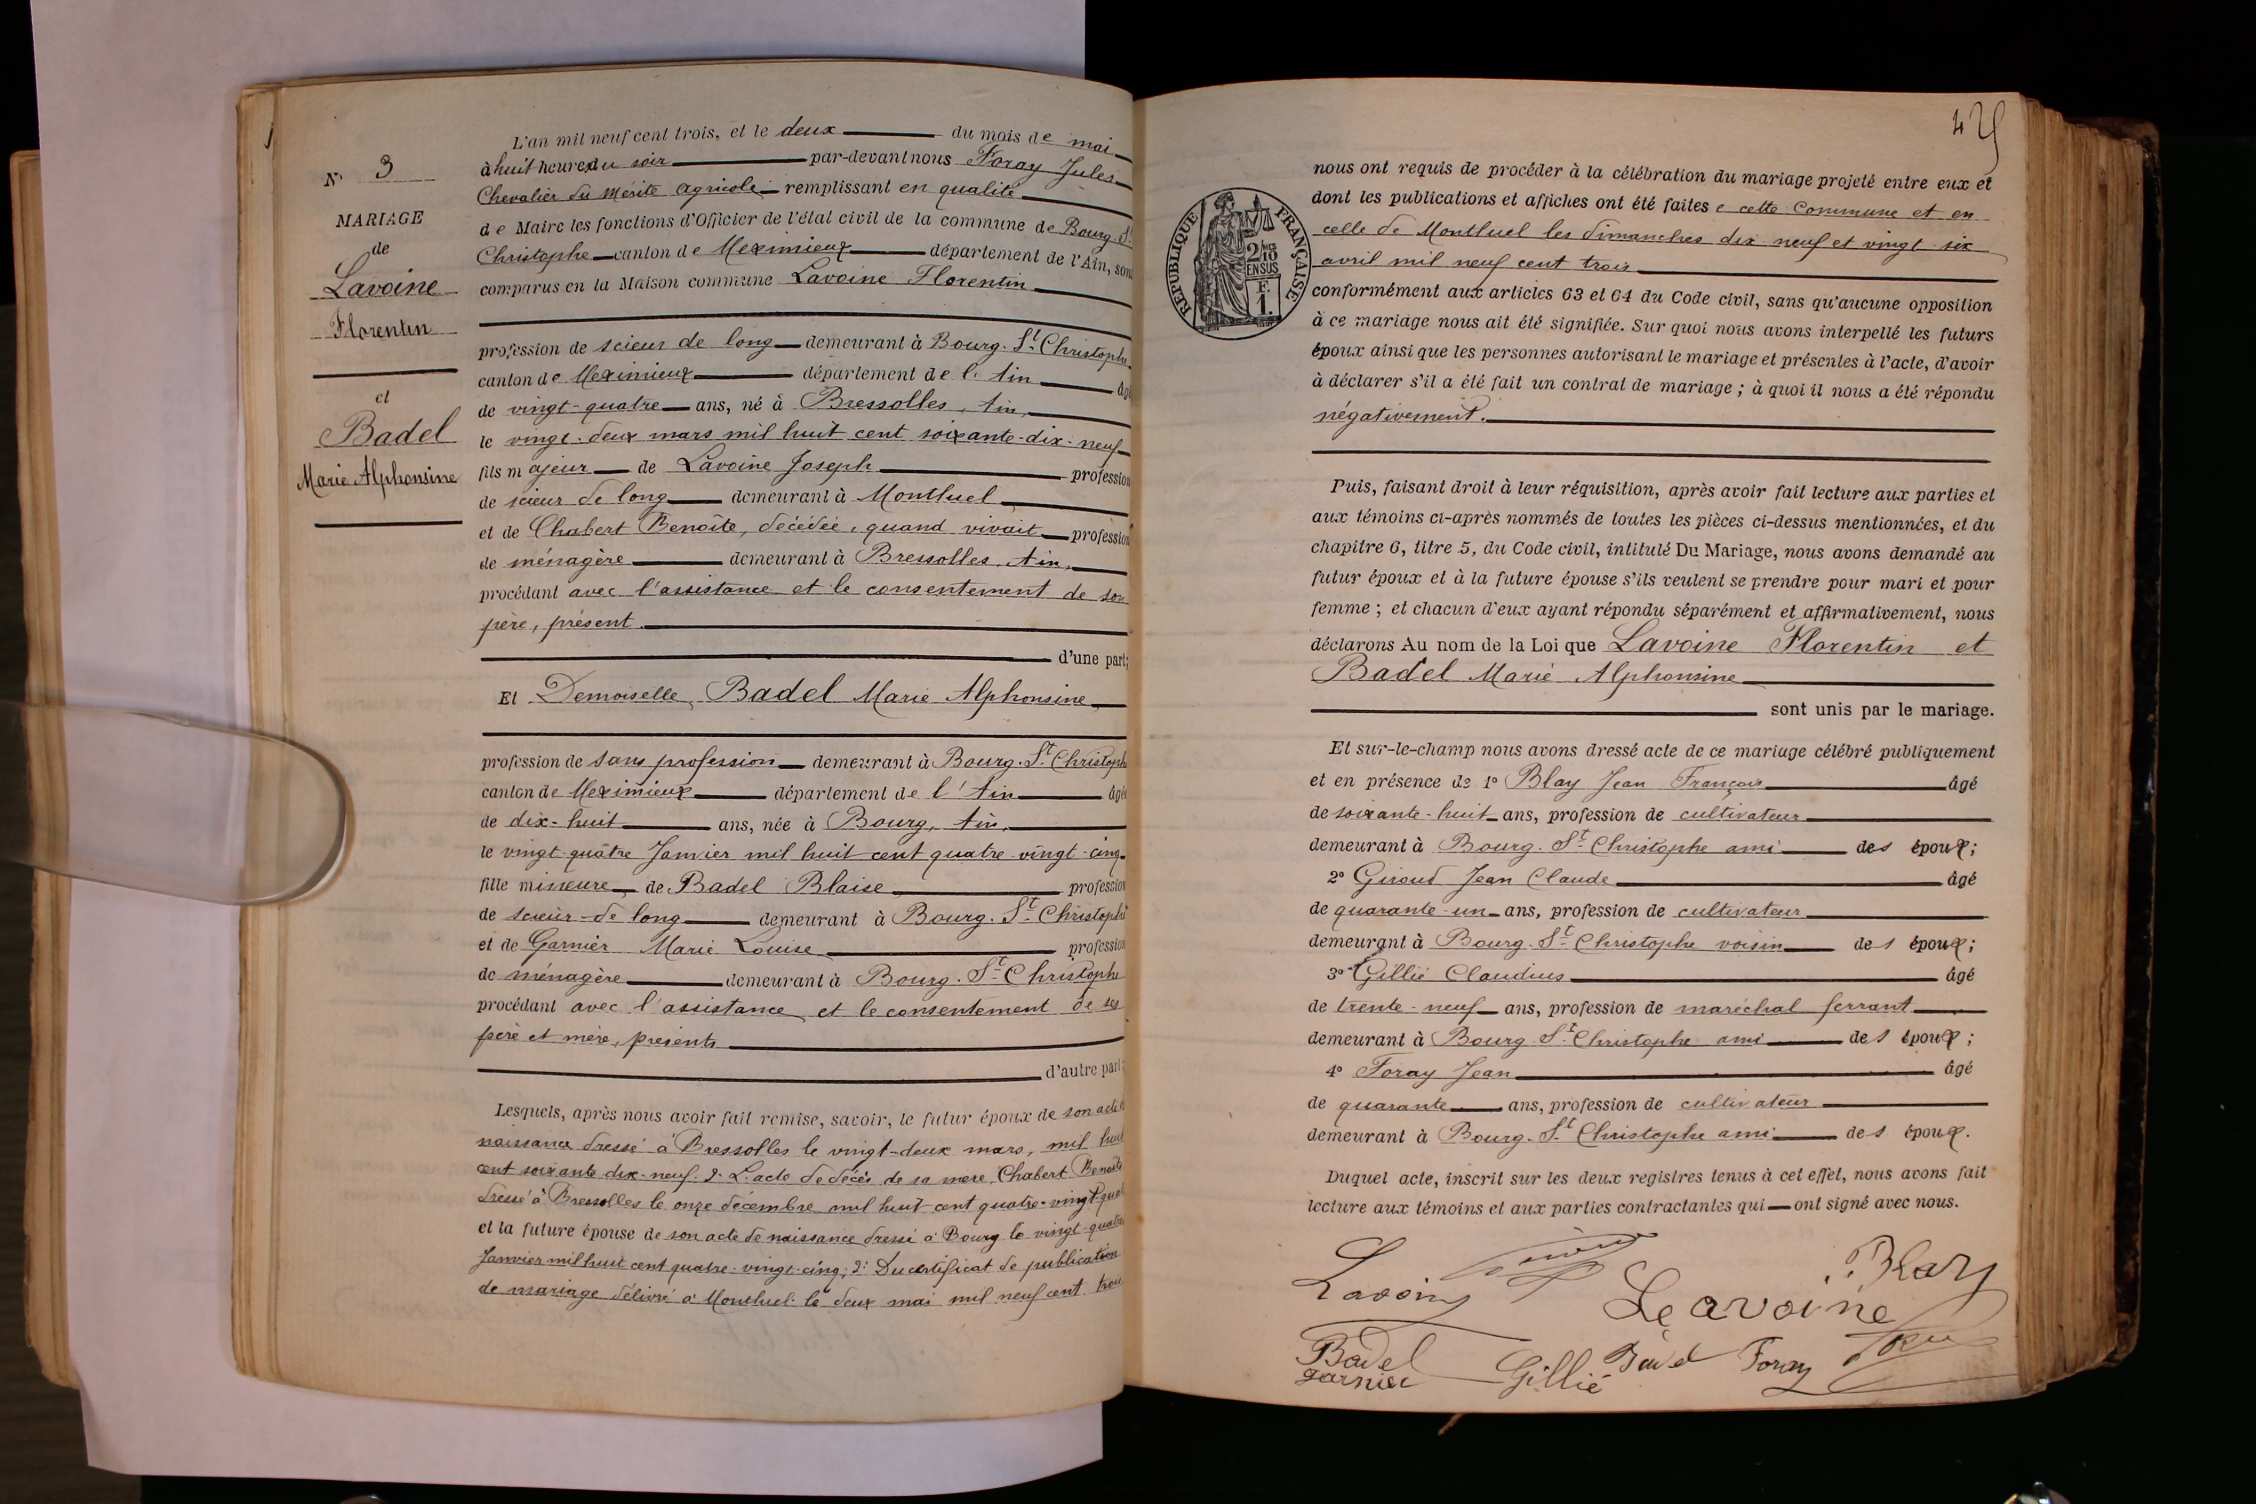 N° 3
MARIAGE
de
Lavoine
Florentin
et
Badel
Marie Alphonsine
L'an mil neuf cent trois, et le deux du mois de mai
à huit heures du soir par-devant nous Foray Jules
Chevalier du Mérite Agricole remplissant en qualité
de Maire les fonctions d'Officier de l'état civil de la commune de Bourg-St-
Christophe canton de Meximieux département de l'Ain, sont
comparus en la Maison commune Lavoine Florentin
profession de scieur de long demeurant à Bourg-St-Christophe
canton de Meximieux département de l'Ain âgé
de vingt-quatre ans, né à Bressolles, Ain,
le vingt-deux mars mil huit cent soixante-dix-neuf
fils majeur de Lavoine Joseph profession
de scieur de long demeurant à Montluel
et de Chabert Benoîte, décédée, quand vivait profession
de ménagère demeurant à Bressolles, Ain,
procédant avec l'assistance et le consentement de son
père, présent.
d'une part;
Et Demoiselle, Badel Marie Alphonsine
profession de sans profession demeurant à Bourg-St-Christophe
canton de Meximieux département de l'Ain âgée
de dix-huit ans, née à Bourg, Ain,
le vingt-quatre Janvier mil huit cent quatre-vingt-cinq
fille mineure de Badel Blaise profession
de scieur de long demeurant à Bourg-St-Christophe
et de Garnier Marie Louise profession
de ménagère demeurant à Bourg-St-Christophe
procédant avec l'assistance et le consentement de ses
père et mère, présents
d'autre part;
Lesquels, après nous avoir fait remise, savoir, le futur époux de son acte de
naissance dressé à Bressolles le vingt-deux mars, mil huit
cent soixante dix-neuf. 2° L'acte de décès de sa mère, Chabert Benoîte
dressé à Bressolles le onze décembre mil huit cent quatre-vingt-quat
et la future épouse de son acte de naissance dressé à Bourg le vingt-quatre
Janvier mil huit cent quatre-vingt-cinq; 2° Du certificat de publication
de mariage délivré à Montluel le deux mai mil neuf cent trois
RÉPUBLIQUE FRANÇAISE
2/10
EN SUS
F.
1.
nous ont requis de procéder à la célébration du mariage projeté entre eux et
dont les publications et affiches ont été faites e cette Commune et en
celle de Montluel les dimanches dix-neuf et vingt-six
avril mil neuf cent trois
conformément aux articles 63 et 64 du Code civil, sans qu'aucune opposition
à ce mariage nous ait été signifiée. Sur quoi nous avons interpellé les futurs
époux ainsi que les personnes autorisant le mariage et présentes à l'acte, d'avoir
à déclarer s'il a été fait un contrat de mariage; à quoi il nous a été répondu
négativement.
Puis, faisant droit à leur réquisition, après avoir fait lecture aux parties et
aux témoins ci-après nommés de toutes les pièces ci-dessus mentionnées, et du
chapitre 6, titre 5, du Code civil, intitulé Du Mariage, nous avons demandé au
futur époux et à la future épouse s'ils veulent se prendre pour mari et pour
femme; et chacun d'eux ayant répondu séparément et affirmativement, nous
déclarons Au nom de la Loi que Lavoine Florentin et
Badel Marie Alphonsine
sont unis par le mariage.
Et sur-le-champ nous avons dressé acte de ce mariage célébré publiquement
et en présence de 1° Blay Jean François âgé
de soixante-huit ans, profession de cultivateur
demeurant à Bourg-St-Christophe ami des époux;
2° Giroud Jean Claude âgé
de quarante-un ans, profession de cultivateur
demeurant à Bourg-St-Christophe voisin des époux;
3° Gillié Claudius âgé
de trente-neuf ans, profession de maréchal ferrant
demeurant à Bourg-St-Christophe ami des époux;
4° Foray Jean âgé
de quarante ans, profession de cultivateur
demeurant à Bourg-St-Christophe ami des époux.
Duquel acte, inscrit sur les deux registres tenus à cet effet, nous avons fait
lecture aux témoins et aux parties contractantes qui ont signé avec nous.
Lavoine Blay
Leavoine
Badel Badel Foray
garnier Gillié